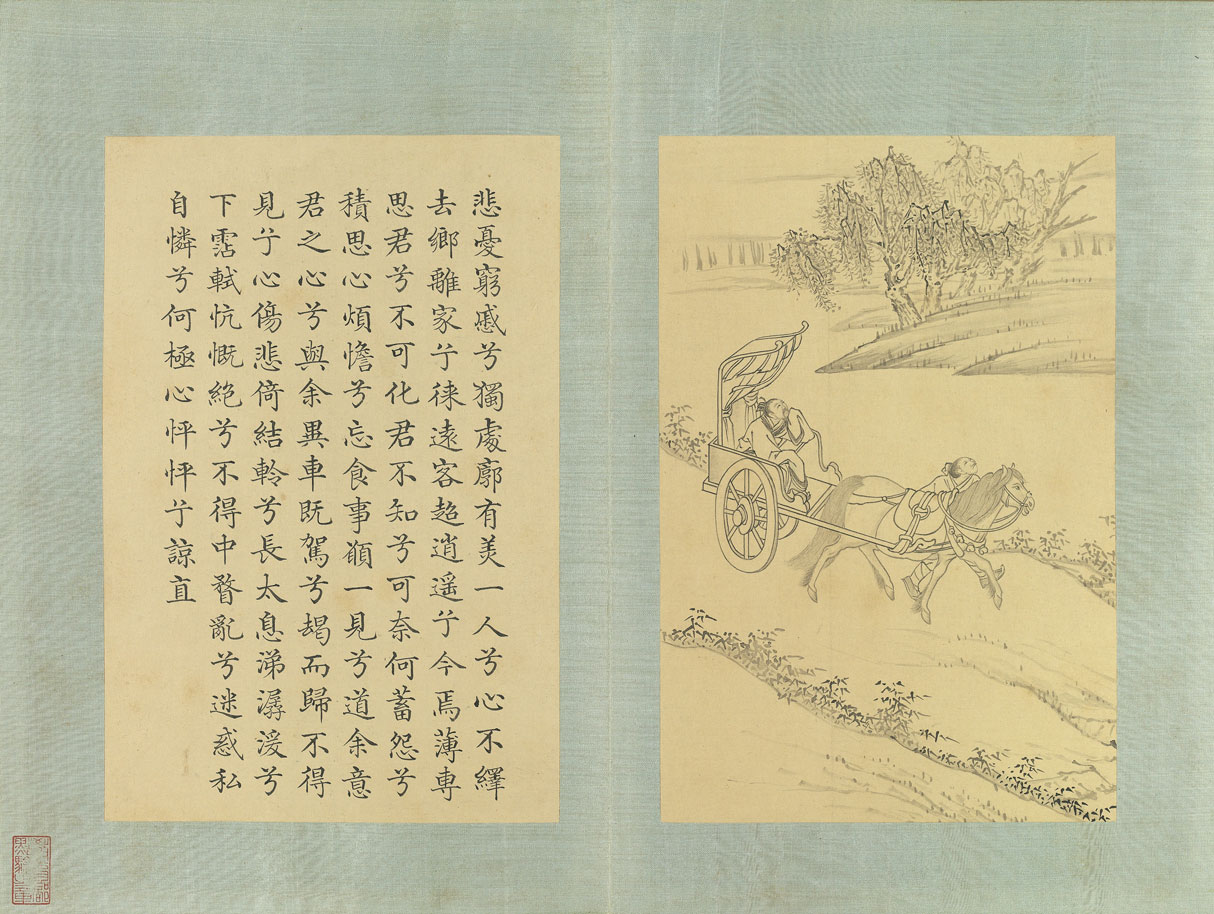 悲憂窮慼兮獨處廓有美一人兮心不繹
去鄉離家兮徠遠客超逍遥兮今焉薄専
思君兮不可化君不知兮可奈何蓄怨兮
積思心煩憺兮忘食事願一見兮道余意
君之心兮與余異車既駕兮朅而歸不得
見兮心傷悲倚結軨兮長太息涕潺湲兮
下霑軾忼慨絶兮不得中瞀亂兮迷惑私
自憐兮何極心怦怦兮諒直